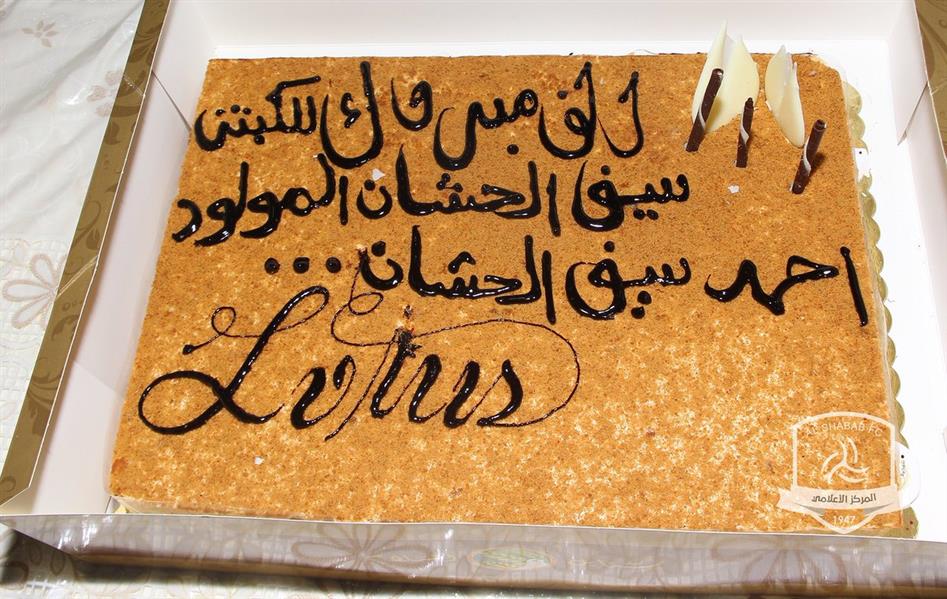 الف مبروك للكبتن
سيف الحشان المولود
احمد سيف الحشان...
Lotus
AL SHABAB FC
المركز الإعلامي
1947